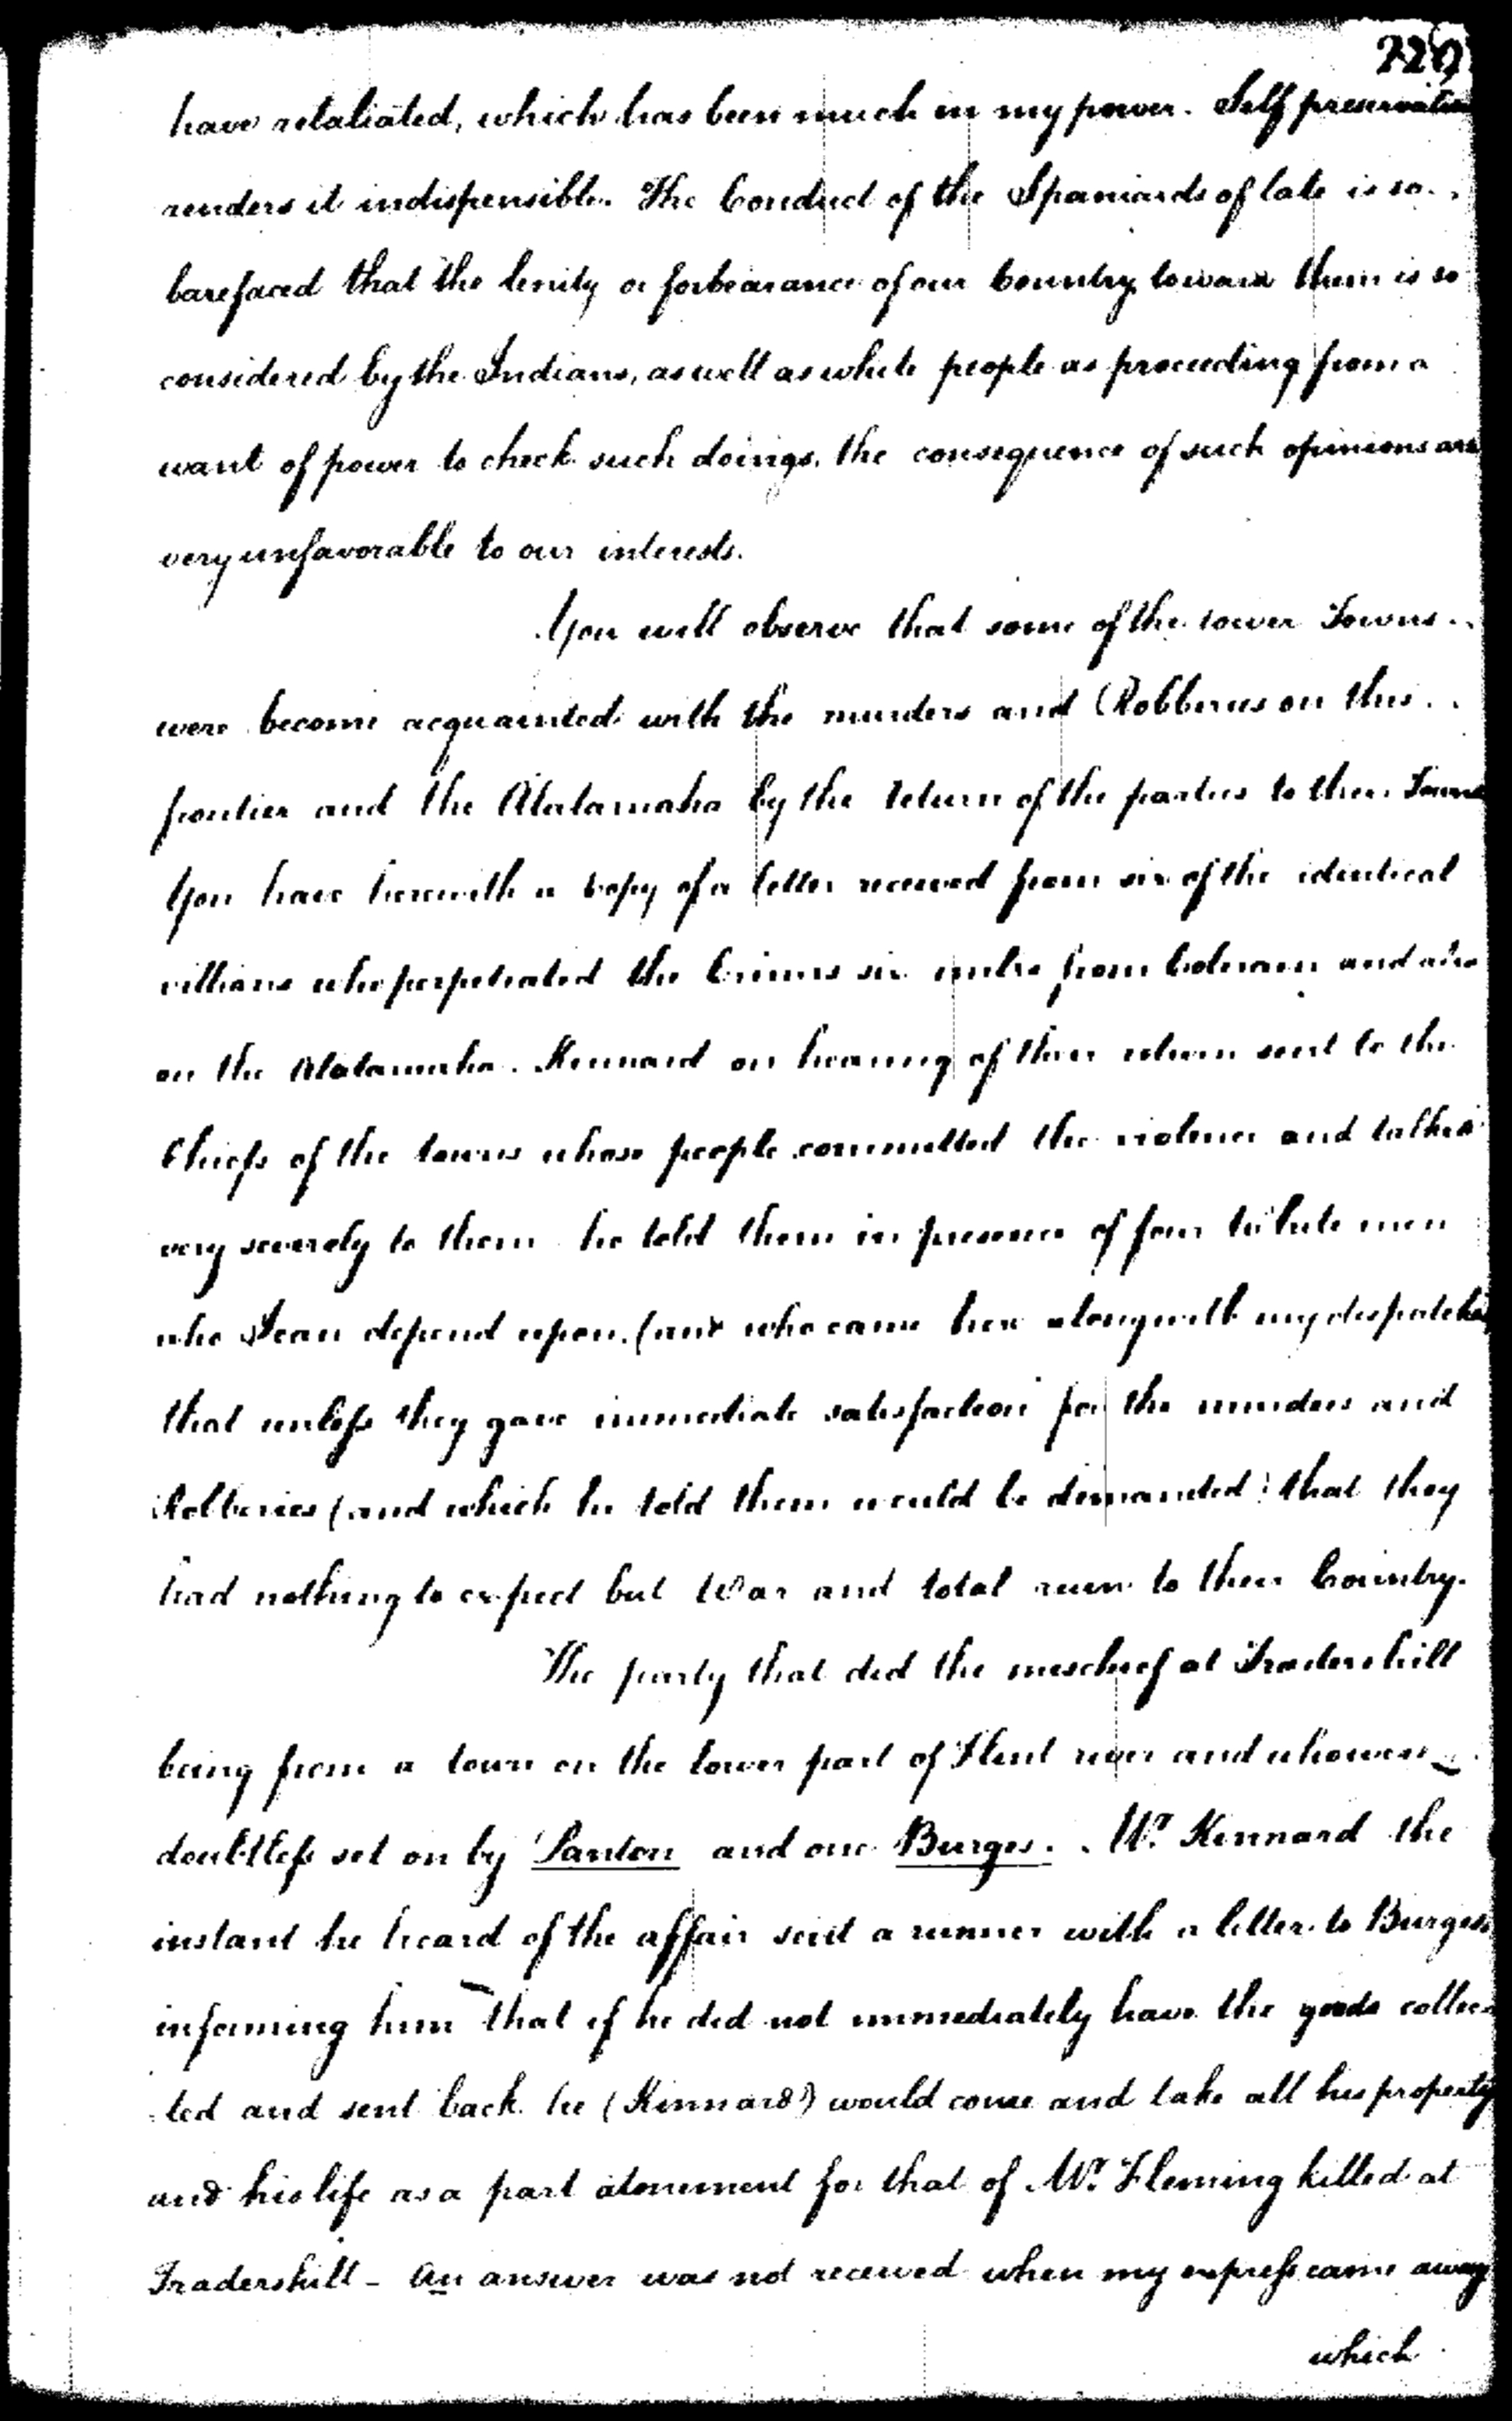 229
have retaliated, which has been much in my power. Self preservation
renders it indispensible. The Conduct of the Spaniards of late is so
barefaced that the lenity or forbearance of our Country toward them is so
considered by the Indians, as well as white people as proceeding from a
want of power to check such doings, the consequence of such opinions are
very unfavorable to our interests.
You will observe that some of the lower Towns
were become acquainted with the murders and Robberies on this
frontier and the Alatamaha by the return of the parties to their Towns
You have herewith a Copy of a letter received from six of the identical
villians who perpetrated the Crimes six miles from Colerain and also
on the Alatamaha. Kennard on hearing of their return sent to the
Chiefs of the towns whose people committed the violence and talked
very severely to them he told them in presence of four white men
who I can depend upon (and who came here along with my despatches
that unless they gave immediate satisfaction for the murders and
Robberies (and which he told them would be demanded) that they
had nothing to expect but War and total ruin to their Country.
The party that did the mischief at Traders hill
being from a town on the lower part of Flint river and who were
doubtless set on by Panton and one Burges. Mr. Kinnard the
instant he heard of the affair sent a runner with a letter to Burges
informing him that if he did not immediately have the goods collec-
ted and sent back he (Kinnard) would come and take all his property
and his life as a part atonement for that of Mr. Fleming killed at
Traders hill - An answer was not received when my express came away
which